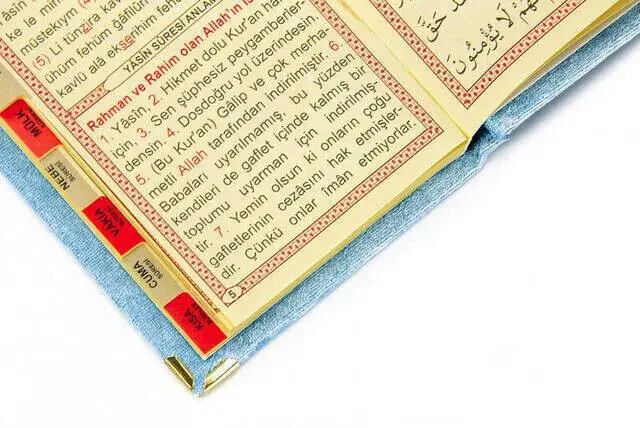 müstekıym
(5) Li tünzira
ühüm fehüm gâfilûn
kavlü alâ ekserihim fehüm
YÂSİN SÛRESİ ANLAMI
Rahman ve Rahim olan Allah'ın
1. Yâsîn; 2. Hikmet dolu Kur'an hakkı
için, 3. Sen şüphesiz peygamberler-
densin. 4. Dosdoğru yol üzerindesin.
5. (Bu Kur'an) Gâlip ve çok merha-
metli Allah tarafından indirilmiştir. 6.
Babaları uyarılmamış, bu yüzden
kendileri de gaflet içinde kalmış bir
toplumu uyarman için indirilmiş-
tir. 7. Yemin olsun ki onların çoğu
gafletlerinin cezâsını hak etmişler-
dir. Çünkü onlar îmân etmiyorlar.
5
MÜLK
SÛRESİ
NEBE
SÛRESİ
VÂKIA
SÛRESİ
CUMA
SÛRESİ
KISA
SÛRELER
لَا يُؤْمِنُونَ